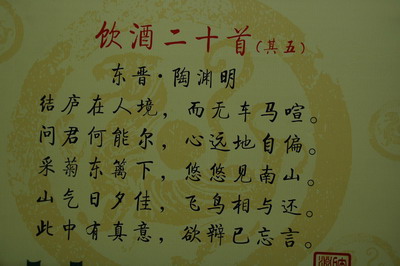 饮酒二十首（其五）
东晋·陶渊明
结庐在人境，而无车马喧。
问君何能尔，心远地自偏。
采菊东篱下，悠悠见南山。
山气日夕佳，飞鸟相与还。
此中有真意，欲辩已忘言。